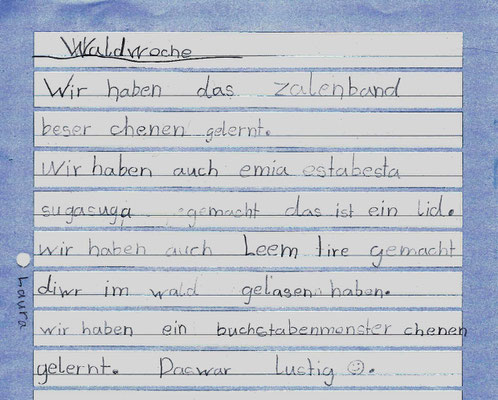 Waldwoche
Wir haben das zalenband
beser chenen gelernt.
Wir haben auch emia estabesta
sugasuga gemacht das ist ein lid.
wir haben auch Leem tire gemacht
diwr im wald gelasen haben.
wir haben ein buchstabenmonster chenen
gelernt. Daswar lustig ☺.
Laura